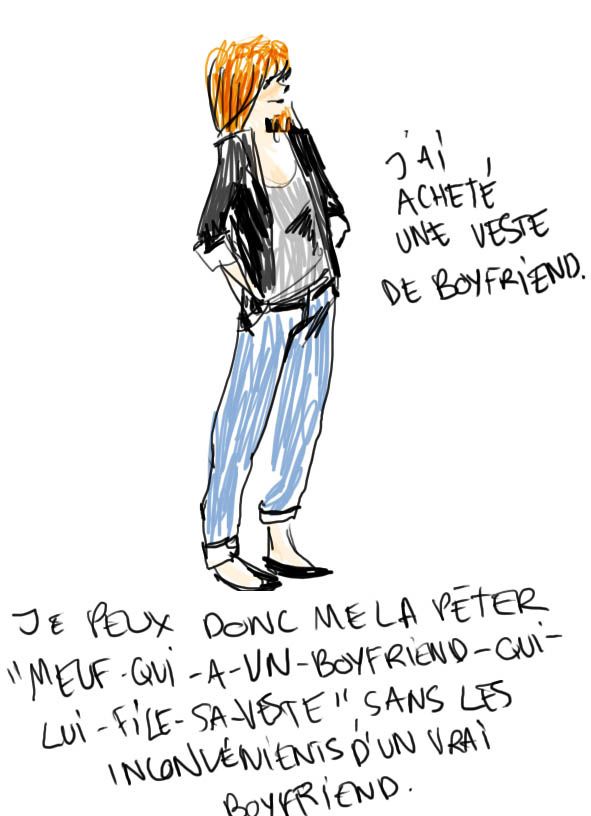 J'AI
ACHETÉ
UNE VESTE
DE BOYFRIEND.
JE PEUX DONC ME LA PÉTER
"MEUF-QUI-A-UN-BOYFRIEND-QUI-
LUI-FILE-SA-VESTE", SANS LES
INCONVÉNIENTS D'UN VRAI
BOYFRIEND.